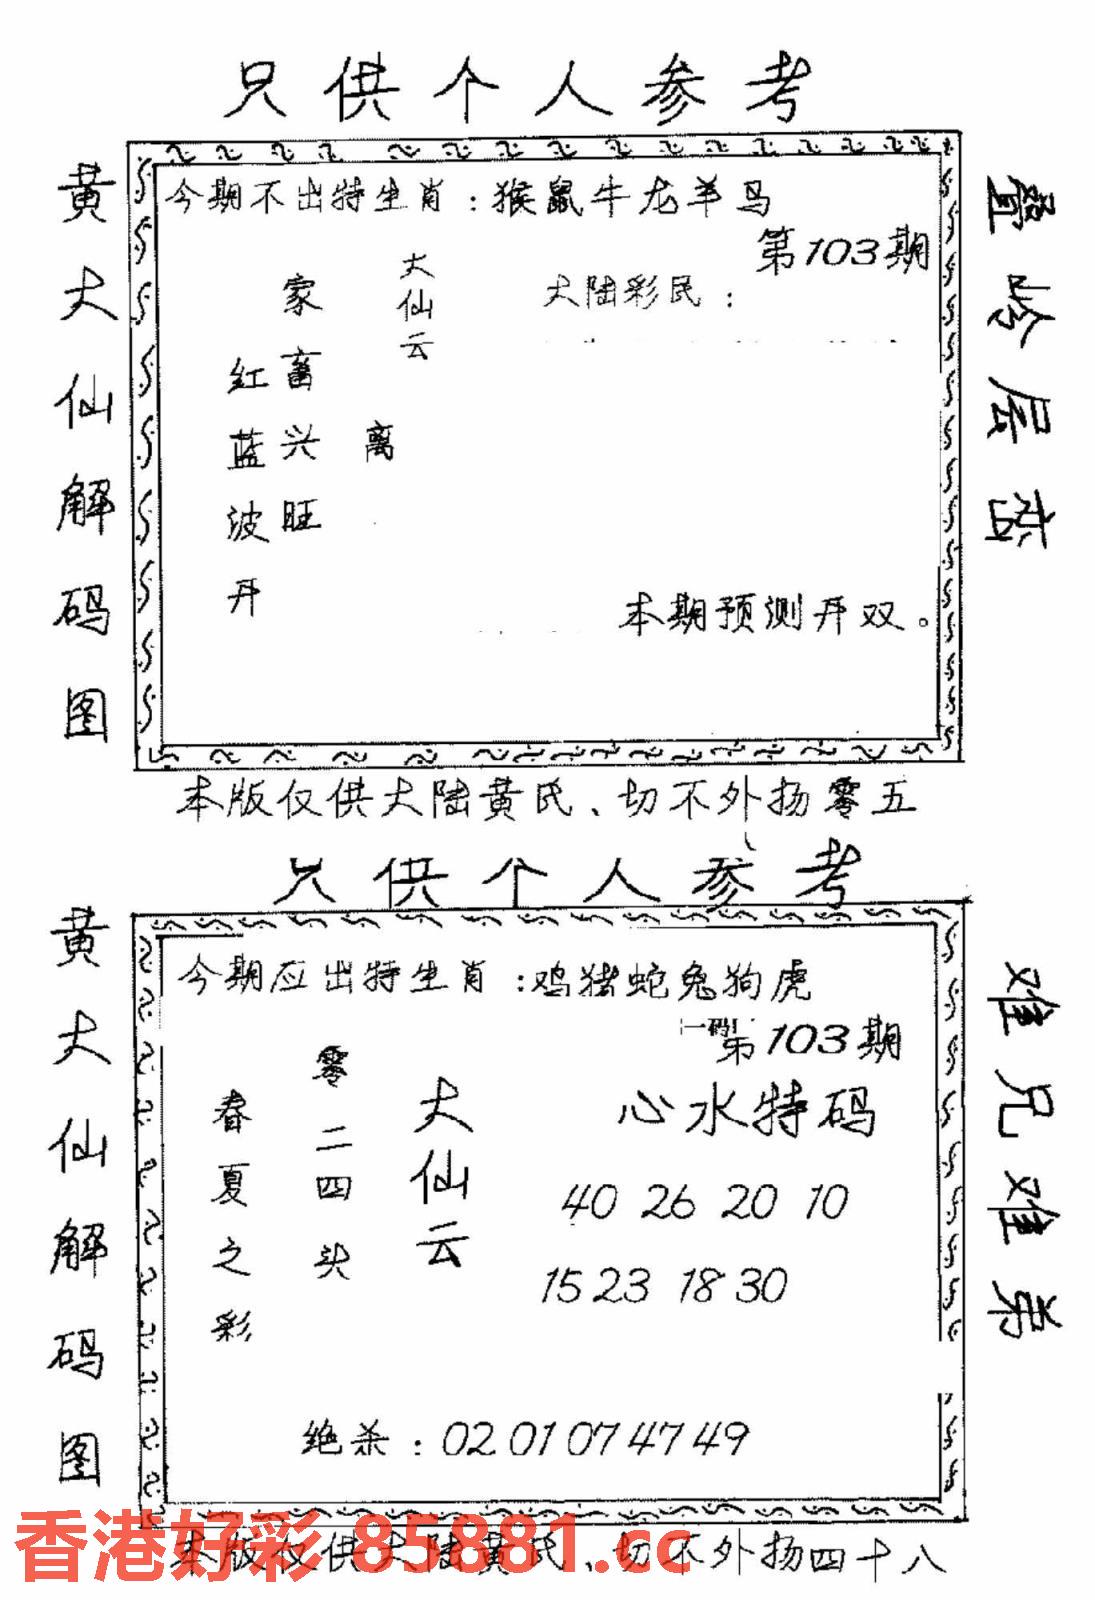 只供个人参考
黄大仙解码图
今期不出特生肖：猴鼠牛龙羊马
第103期
大陆彩民：
大仙云
离
家畜兴旺
红蓝波开
本期预测开双。
叠岭层峦
本版仅供大陆黄氏、切不外扬零五
只供个人参考
黄大仙解码图
今期应出特生肖：鸡猪蛇兔狗虎
一码
第103期
心水特码
大仙云
零二四头
春夏之彩
40 26 20 10
15 23 18 30
绝杀：02 01 07 47 49
难兄难弟
本版仅供大陆黄氏、切不外扬四十八
香港好彩 85881.cc